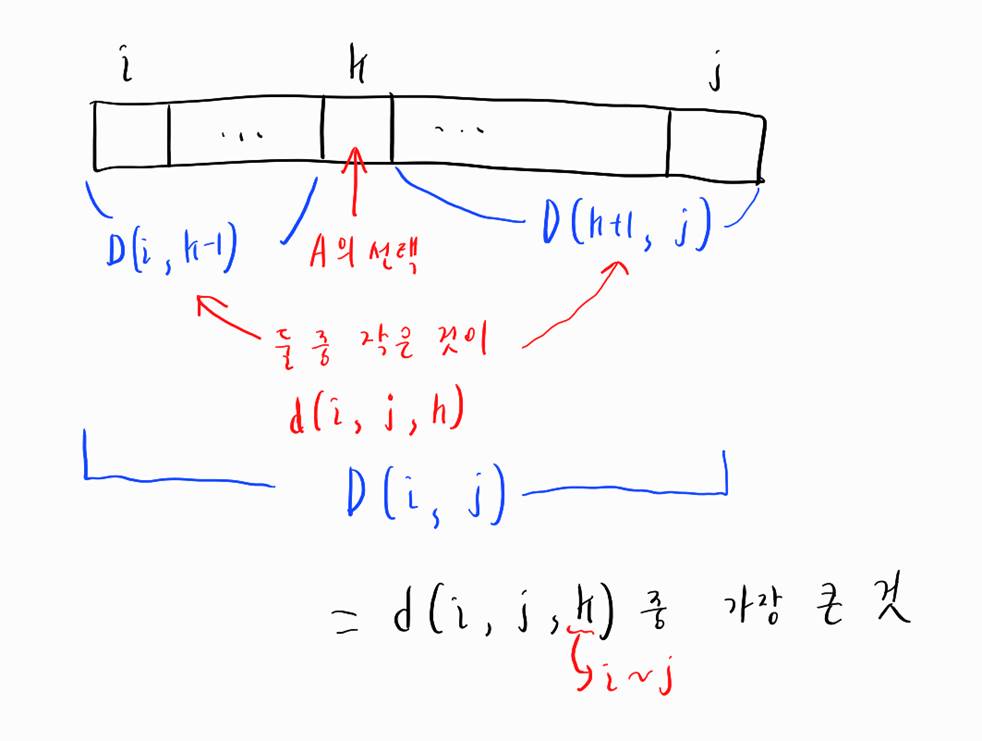 i k j
... ...
D(i, k-1) A의 선택 D(k+1, j)
둘 중 작은 것이
d(i, j, k)
D(i, j)
= d(i, j, k) 중 가장 큰 것
i ~ j